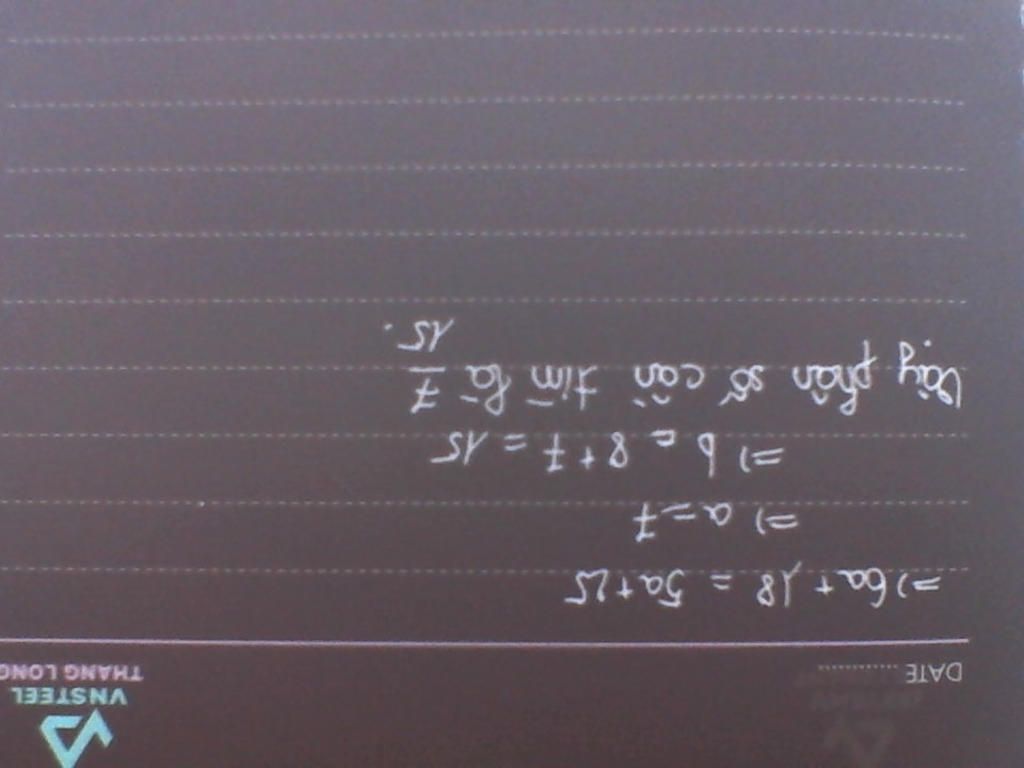 VNSTEEL
THANG LONG
DATE ............
=> 6a + 18 = 5a + 25
=> a = 7
=> b = 8 + 7 = 15
Vậy phân số cần tìm là 7/15.